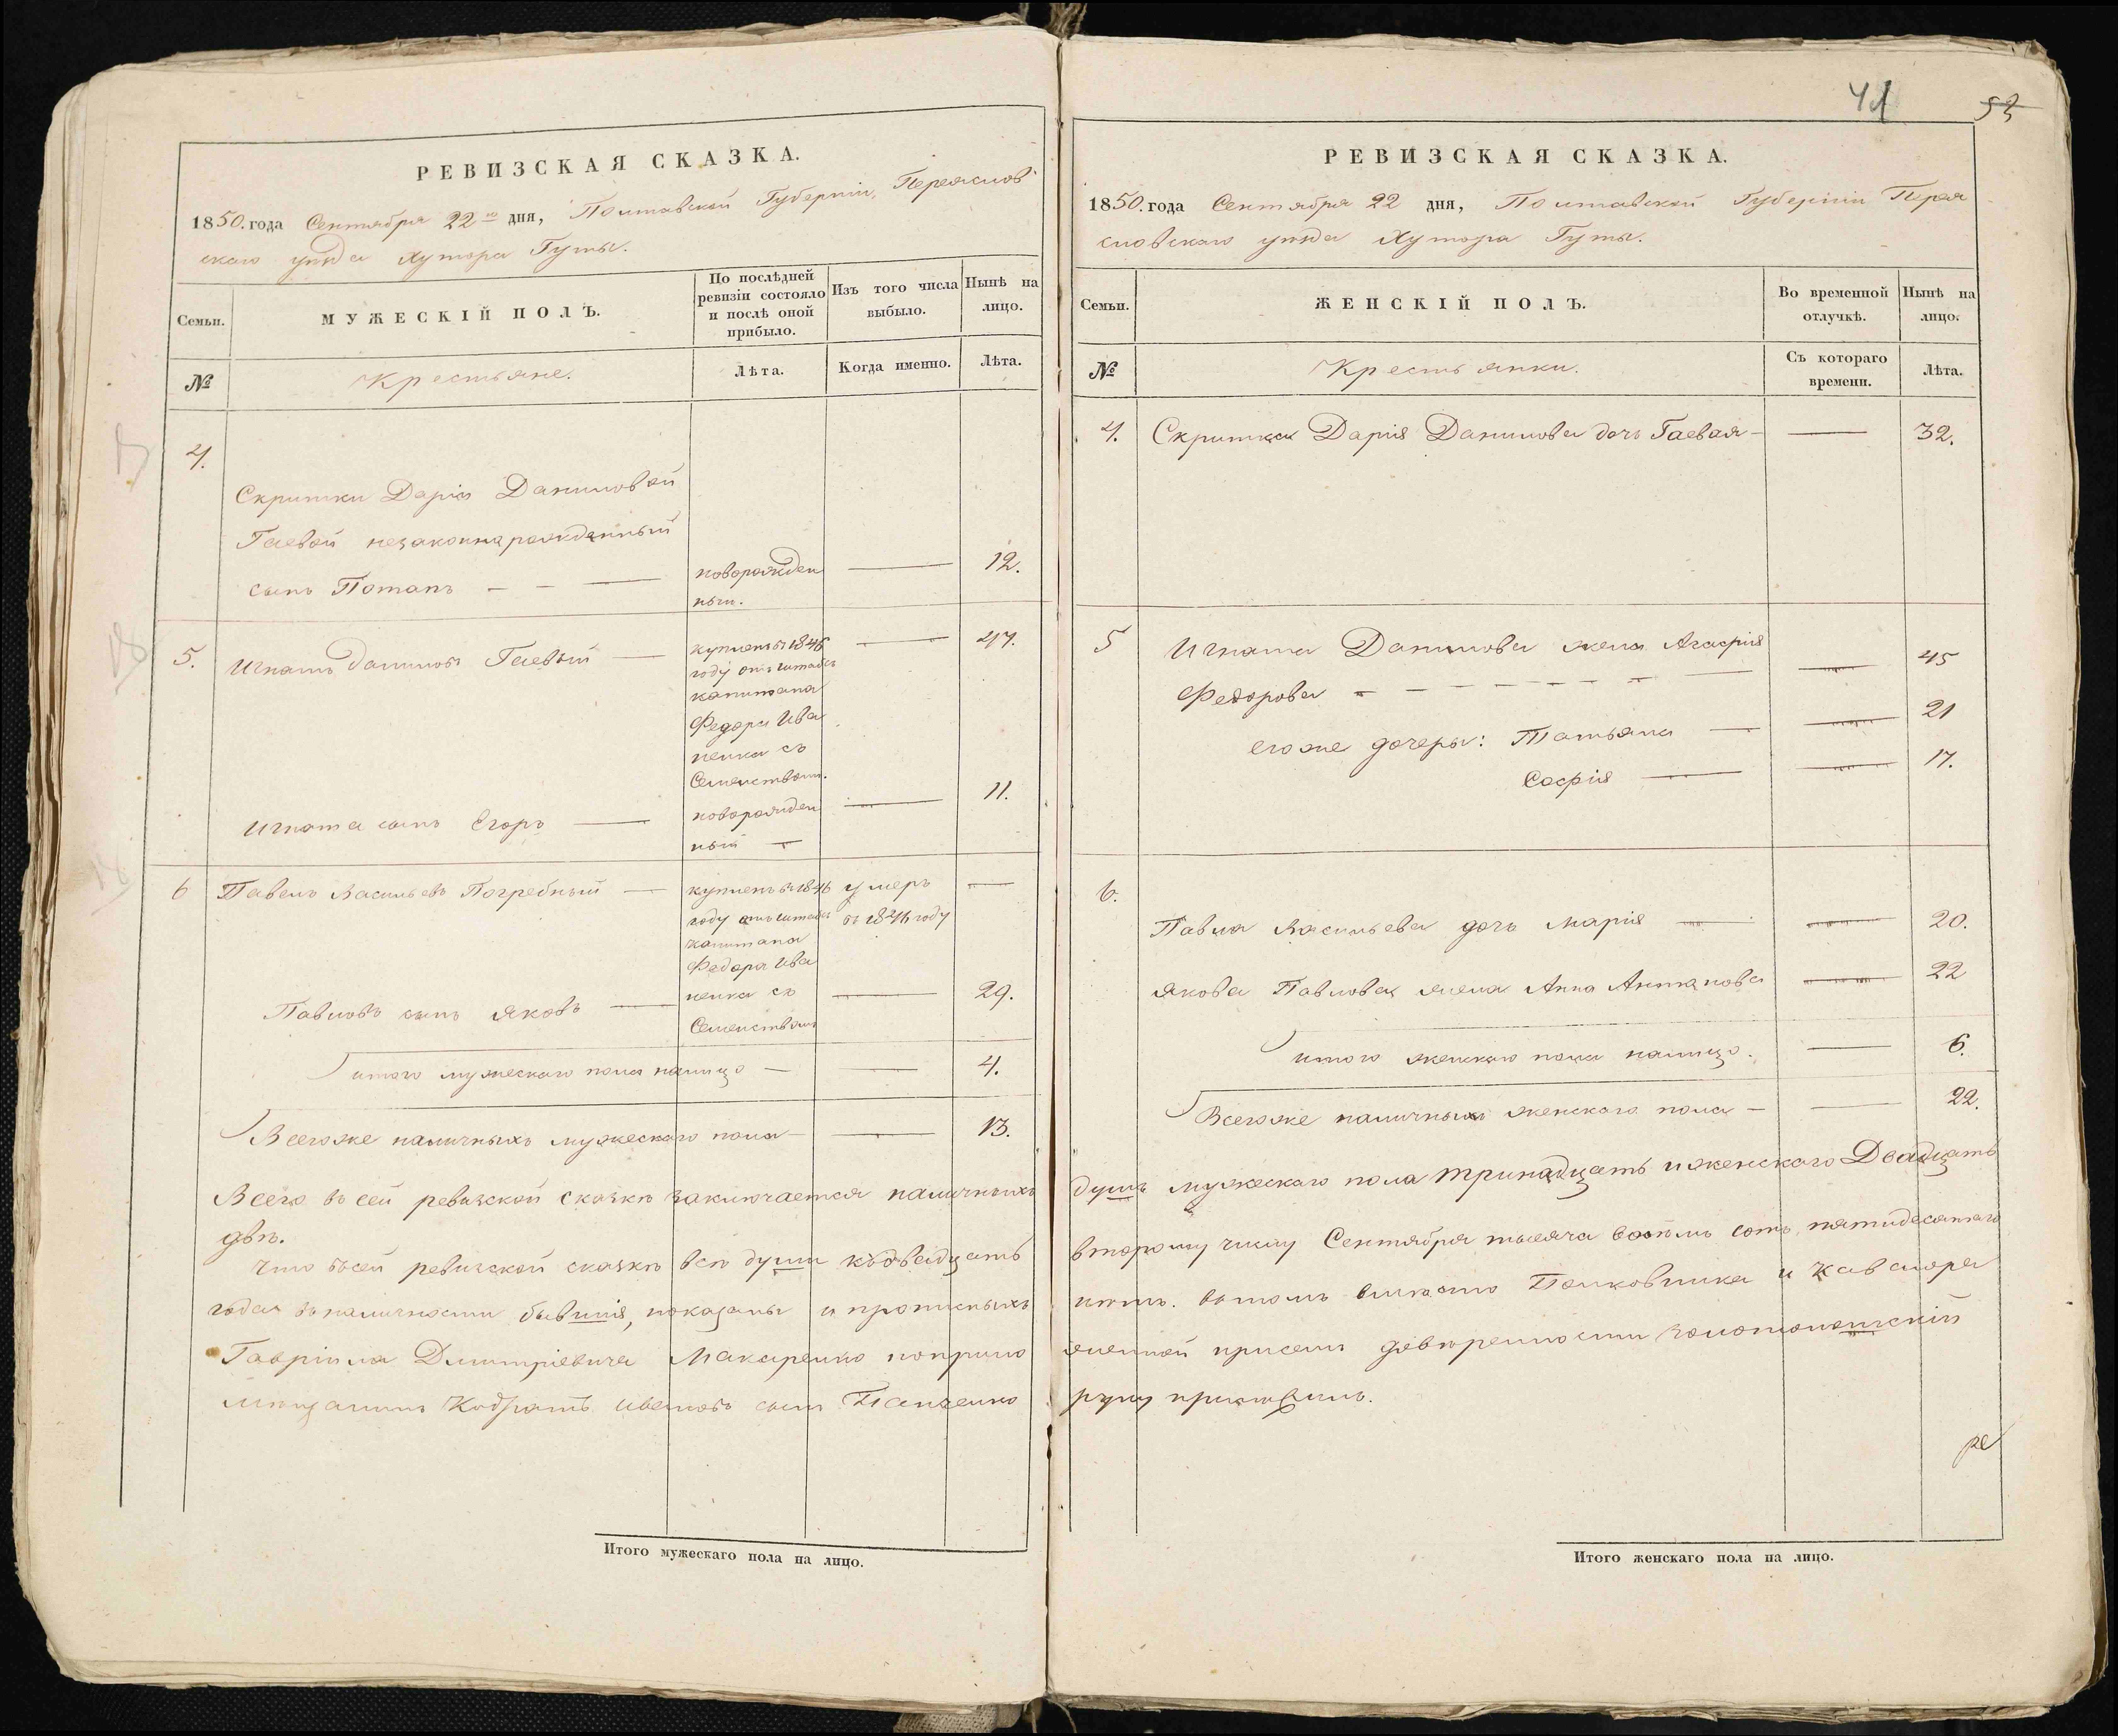 РЕВИЗСКАЯ СКАЗКА.
1850. года Сентября 22го дня, Полтавской Губерніи, Переяслов
скаго уѣзда Хутора Гуты.
Семьи.
МУЖЕСКІЙ ПОЛЪ.
По послѣдней
ревизіи состояло
и послѣ оной
прибыло.
Изъ того числа
выбыло.
Нынѣ на
лицо.
№
Крестьяне.
Лѣта.
Когда именно.
Лѣта.
4.
Скритки Даріи Даниловой
Гаевой незаконнарожденный
сынъ Потапъ — новорожден — 12.
ный.
5. Игнатъ Даниловъ Гаевый — купленъ в 1846 — 47.
году отъ штабсъ
капитана
Федора Ива
ненка съ
Семействомъ.
Игната сынъ Егоръ — новорожден — 11.
ный —
6 Павелъ Васильевъ Погребный — купленъ в 1846 умеръ —
году отъ штабсъ въ 1846 году
капитана
Федора Ива
Павловъ сынъ Яковъ — ненка съ — 29.
Семействомъ
итого мужескаго пола налицо — — 4.
Всегоже наличныхъ мужескаго пола — — 13.
Всего въ сей ревизской сказкѣ заключается наличныхъ
двѣ.
Что въсей ревизской сказкѣ всѣ души къ двадцать
года въ наличности бывшія, показаны и прописныхъ
Гавріила Дмитріевича Макаренко поприло
мѣщанинъ Кодратъ Ивановъ сынъ Панченко
Итого мужескаго пола на лицо.
41
53
РЕВИЗСКАЯ СКАЗКА.
1850. года Сентября 22 дня, Полтавской Губерніи Перея
словскаго уѣзда Хутора Гуты.
Семьи.
ЖЕНСКІЙ ПОЛЪ.
Во временной
отлучкѣ.
Нынѣ на
лицо.
№
Крестьянки.
Съ котораго
времени.
Лѣта.
4. Скритка Дарія Данилова дочь Гаевая — — 32.
5 Игната Данилова жена Агафія
Федорова — — 45
его же дочеры: Татьяна — — 21
Софія — — 17.
6.
Павла Васильева дочь Марія — — 20.
Якова Павлова жена Анна Антонова — 22
итого женскаго пола налицо. — 6.
Всегоже наличныхъ женскаго пола — — 22.
душъ мужескаго пола тринадцать и женскаго Двадцать
второму числу Сентября тысяча восемь сотъ пятидесятаго
нѣтъ. Вътомъ вмѣсто Полковника и кавалера
женной присемъ довѣренности золотоношскій
руку приложилъ.
Итого женскаго пола на лицо.